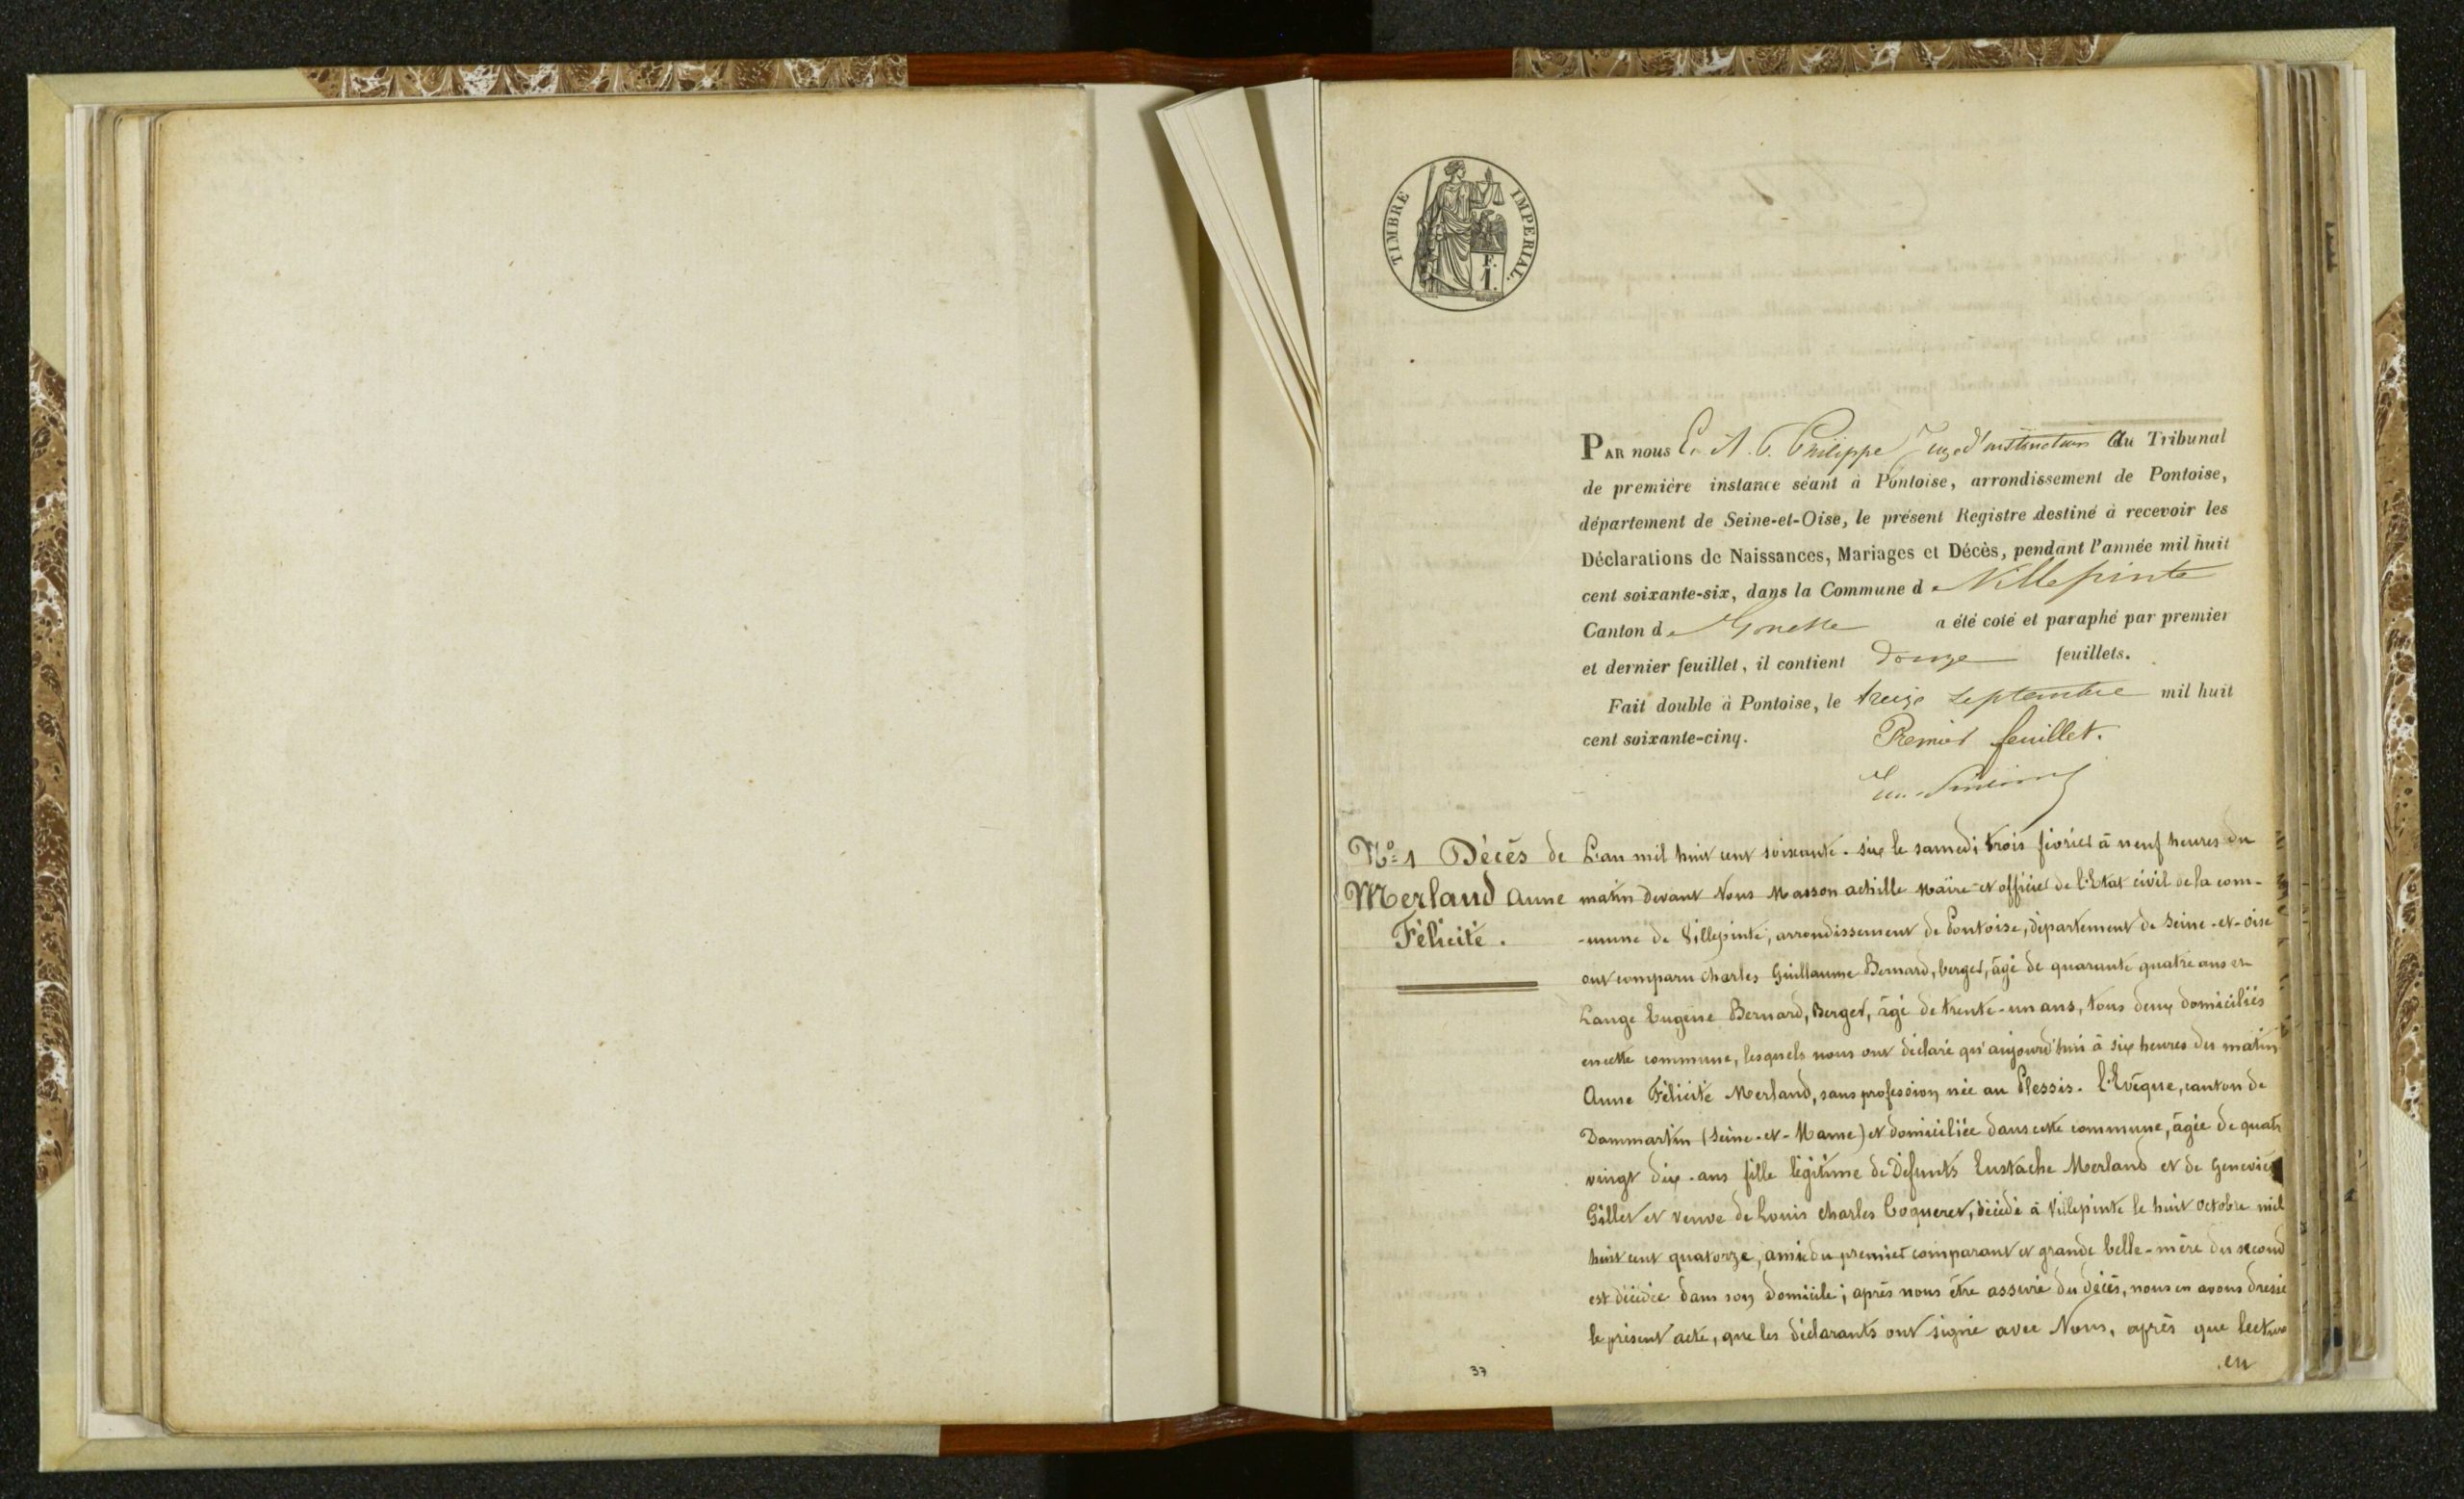 TIMBRE IMPERIAL.
F.
1.
PAR nous E. A. Philippe Juge d'instruction du Tribunal
de première instance séant à Pontoise, arrondissement de Pontoise,
département de Seine-et-Oise, le présent Registre destiné à recevoir les
Déclarations de Naissances, Mariages et Décès, pendant l'année mil huit
cent soixante-six, dans la Commune de Villepinte
Canton de Gonesse a été coté et paraphé par premier
et dernier feuillet, il contient douze feuillets.
Fait double à Pontoise, le treize septembre mil huit
cent soixante-cinq. Premier feuillet.
N.° 1 Décès de
Merland Anne
Félicité.
L'an mil huit cent soixante-six le samedi trois février à neuf heures du
matin devant Nous Masson achille Maire et officier de l'Etat civil de la com-
-mune de Villepinte, arrondissement de Pontoise, département de Seine-et-Oise
ont comparu Charles Guillaume Bernard, berger, âgé de quarante quatre ans et
Lange Eugène Bernard, Berger, âgé de trente-un ans, tous deux domiciliés
en cette commune, lesquels nous ont déclaré qu'aujourd'hui à six heures du matin
Anne Félicité Merland, sans profession née au Plessis-l'Evêque, canton de
Dammartin (Seine-et-Marne) et domiciliée dans cette commune, âgée de quatr
vingt dix-ans fille légitime de Défunts Eustache Merland et de Geneviè
Gillet et veuve de Louis Charles Coqueret, décédé à Villepinte le huit octobre mil
huit cent quatorze, amie du premier comparant et grande belle-mère du second
est décédée dans son domicile; après nous être assuré du décès, nous en avons dressé
le présent acte, que les déclarants ont signé avec Nous, après que lecture
en
37